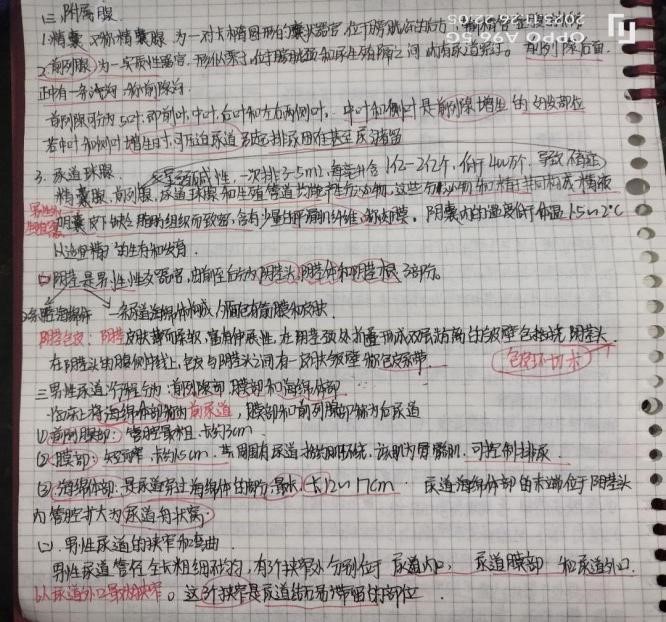 二附属腺
1.精囊 又称精囊腺 为一对长椭圆形的囊状器官,位于膀胱底的后方
2.前列腺 为一实质性器官.形似栗子,位于膀胱颈和尿生殖膈之间 内有尿道穿过。前列腺后面
正中有一条浅沟 称前列腺沟
前列腺可分为5叶.即前叶,中叶,后叶和左右两侧叶, 中叶和侧叶是前列腺增生的好发部位
若中叶和侧叶增生时.可压迫尿道引起排尿困难甚至尿潴留
3.尿道球腺. 呈弱碱性,一次排3-5ml,每毫升含1亿-2亿个,低于400万个,导致不育症
精囊腺.前列腺.尿道球腺和生殖管道均能产生分泌物,这些分泌物和精子共同构成精液
男性外生殖器 阴囊 皮下缺乏脂肪组织而致密,含有少量平滑肌纤维,称肉膜, 阴囊内的温度低于体温1.5~2℃
以适宜精子的生存和发育.
阴茎是男性性交器官,由前至后为阴茎头,阴茎体和阴茎根3部分。
2条阴茎海绵体 一条尿道海绵体构成外面包有筋膜和皮肤
阴茎包皮:阴茎皮肤薄而柔软,富有伸展性,在阴茎颈处前叠形成双层游离的皱襞包指绕阴茎头
在阴茎头的腹侧中线上,包皮与阴茎头之间有一皮肤皱襞称包皮系带. 包皮环切术
三男性尿道 分部分为:前列腺部 膜部和海绵体部
临床上将海绵体部称为前尿道,膜部和前列腺部称为后尿道
(1)前列腺部:管腔最粗,长约3cm.
(2)膜部:短而窄,长约1.5cm.其周围有尿道括约肌环绕.该肌为骨骼肌,可控制排尿
(3)海绵体部:是尿道穿过海绵体的部分.最长,长12~17cm. 尿道海绵体部的末端位于阴茎头
内管腔扩大为尿道舟状窝.
(二).男性尿道的狭窄和弯曲.
男性尿道管径全长粗细不均,有3个狭窄处分别位于尿道内口,尿道膜部 和尿道外口.
以尿道外口最为狭窄。这3个狭窄是尿道结石易滞留的部位
OPPO A96 5G